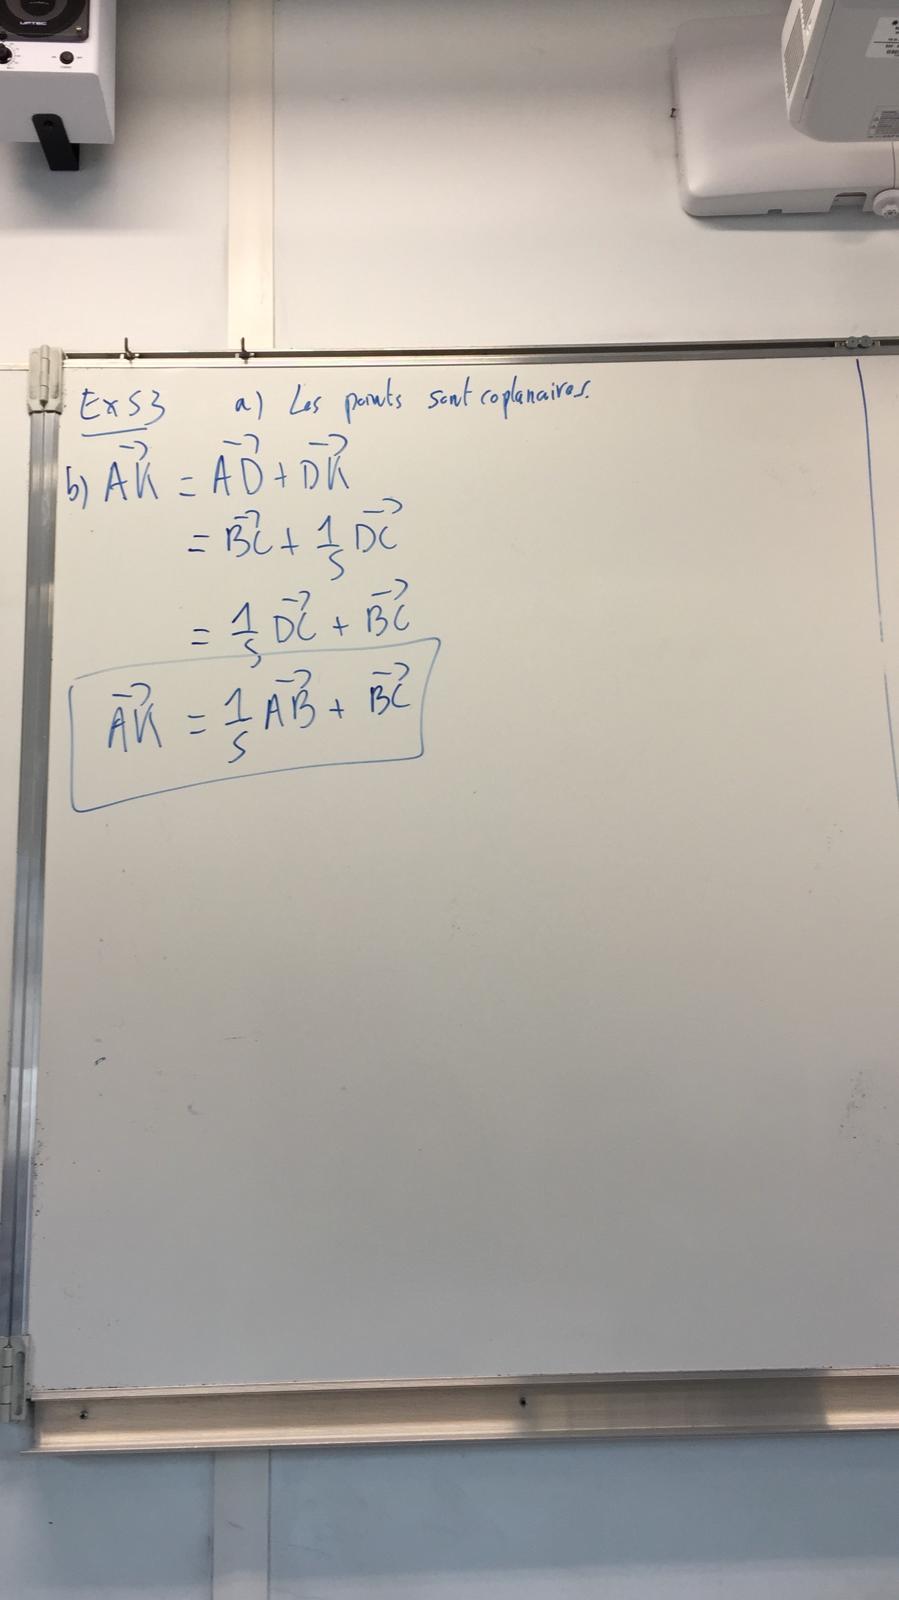 UPTEC
Ex 53 a) Les points sont coplanaires.
b) \vec{AK} = \vec{AD} + \vec{DK}
= \vec{BC} + \frac{1}{5} \vec{DC}
= \frac{1}{5} \vec{DC} + \vec{BC}
\vec{AK} = \frac{1}{5} \vec{AB} + \vec{BC}